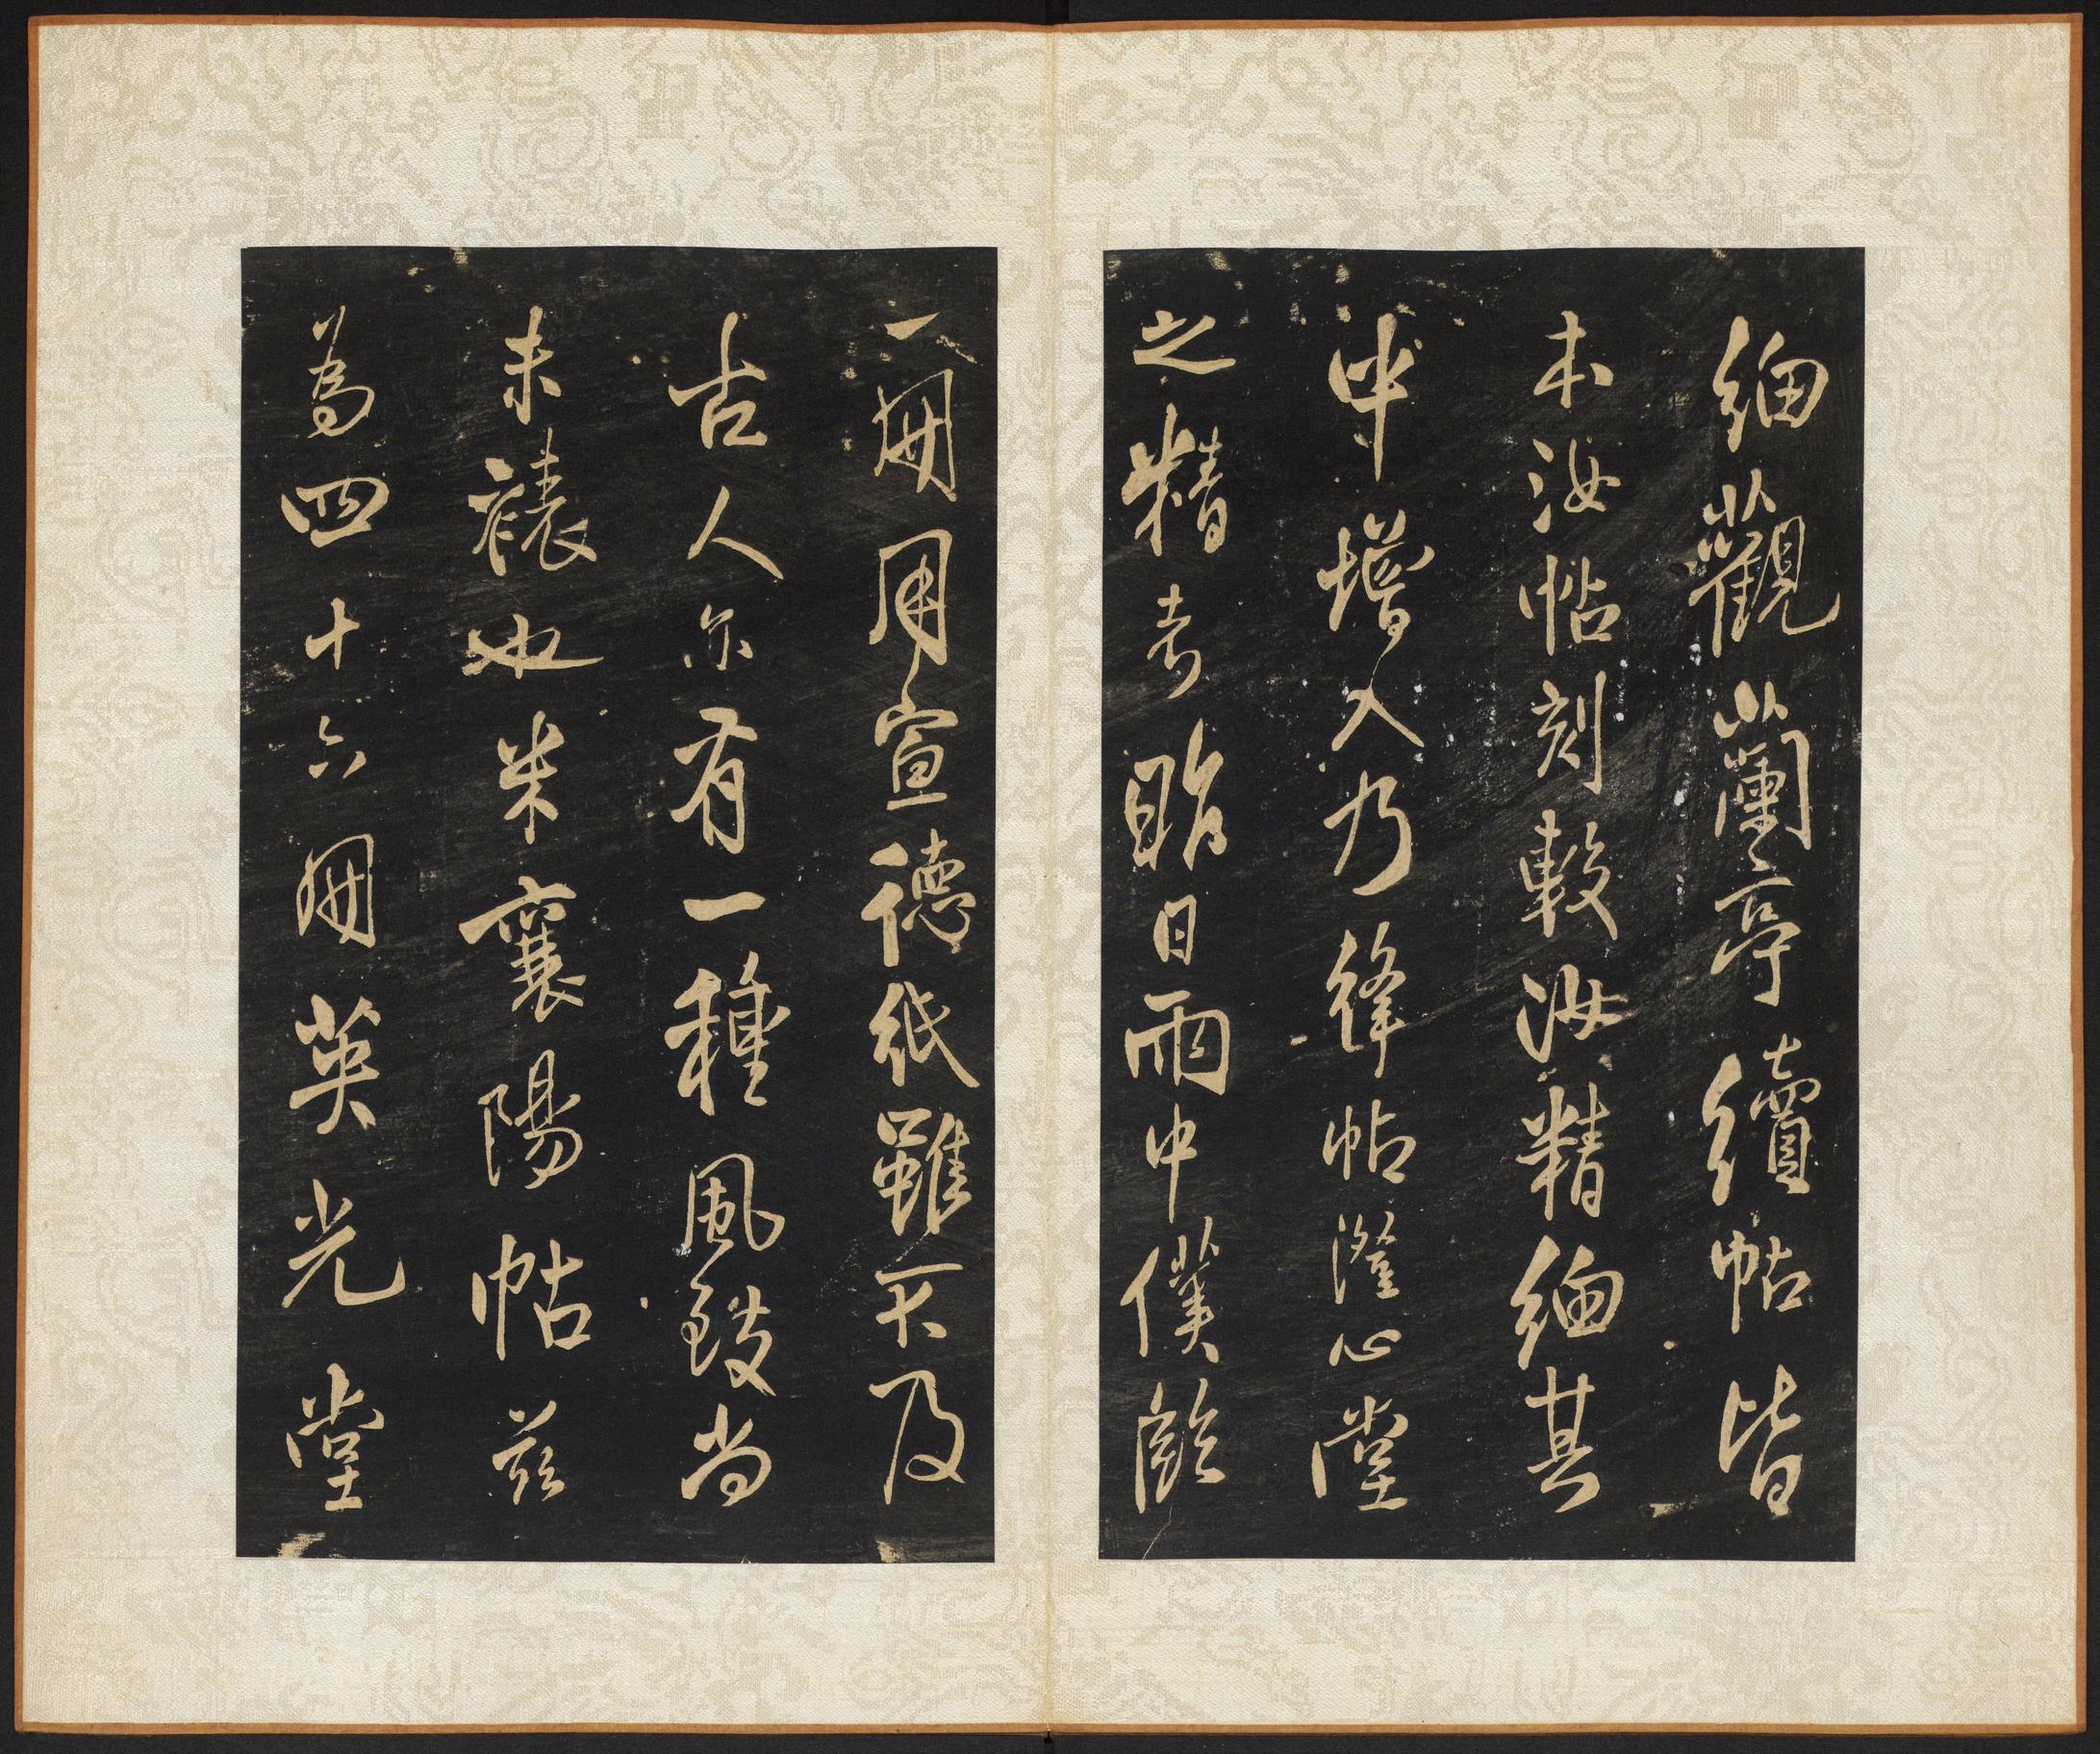 細觀蘭亭續帖皆
本汝帖刻較汝精細其
中增入乃絳帖澄心堂
之精者昨日雨中僕飲
一冊用宣德紙雖不及
古人尓有一種風致尚
未裱也米襄陽帖茲
為四十六冊英光堂